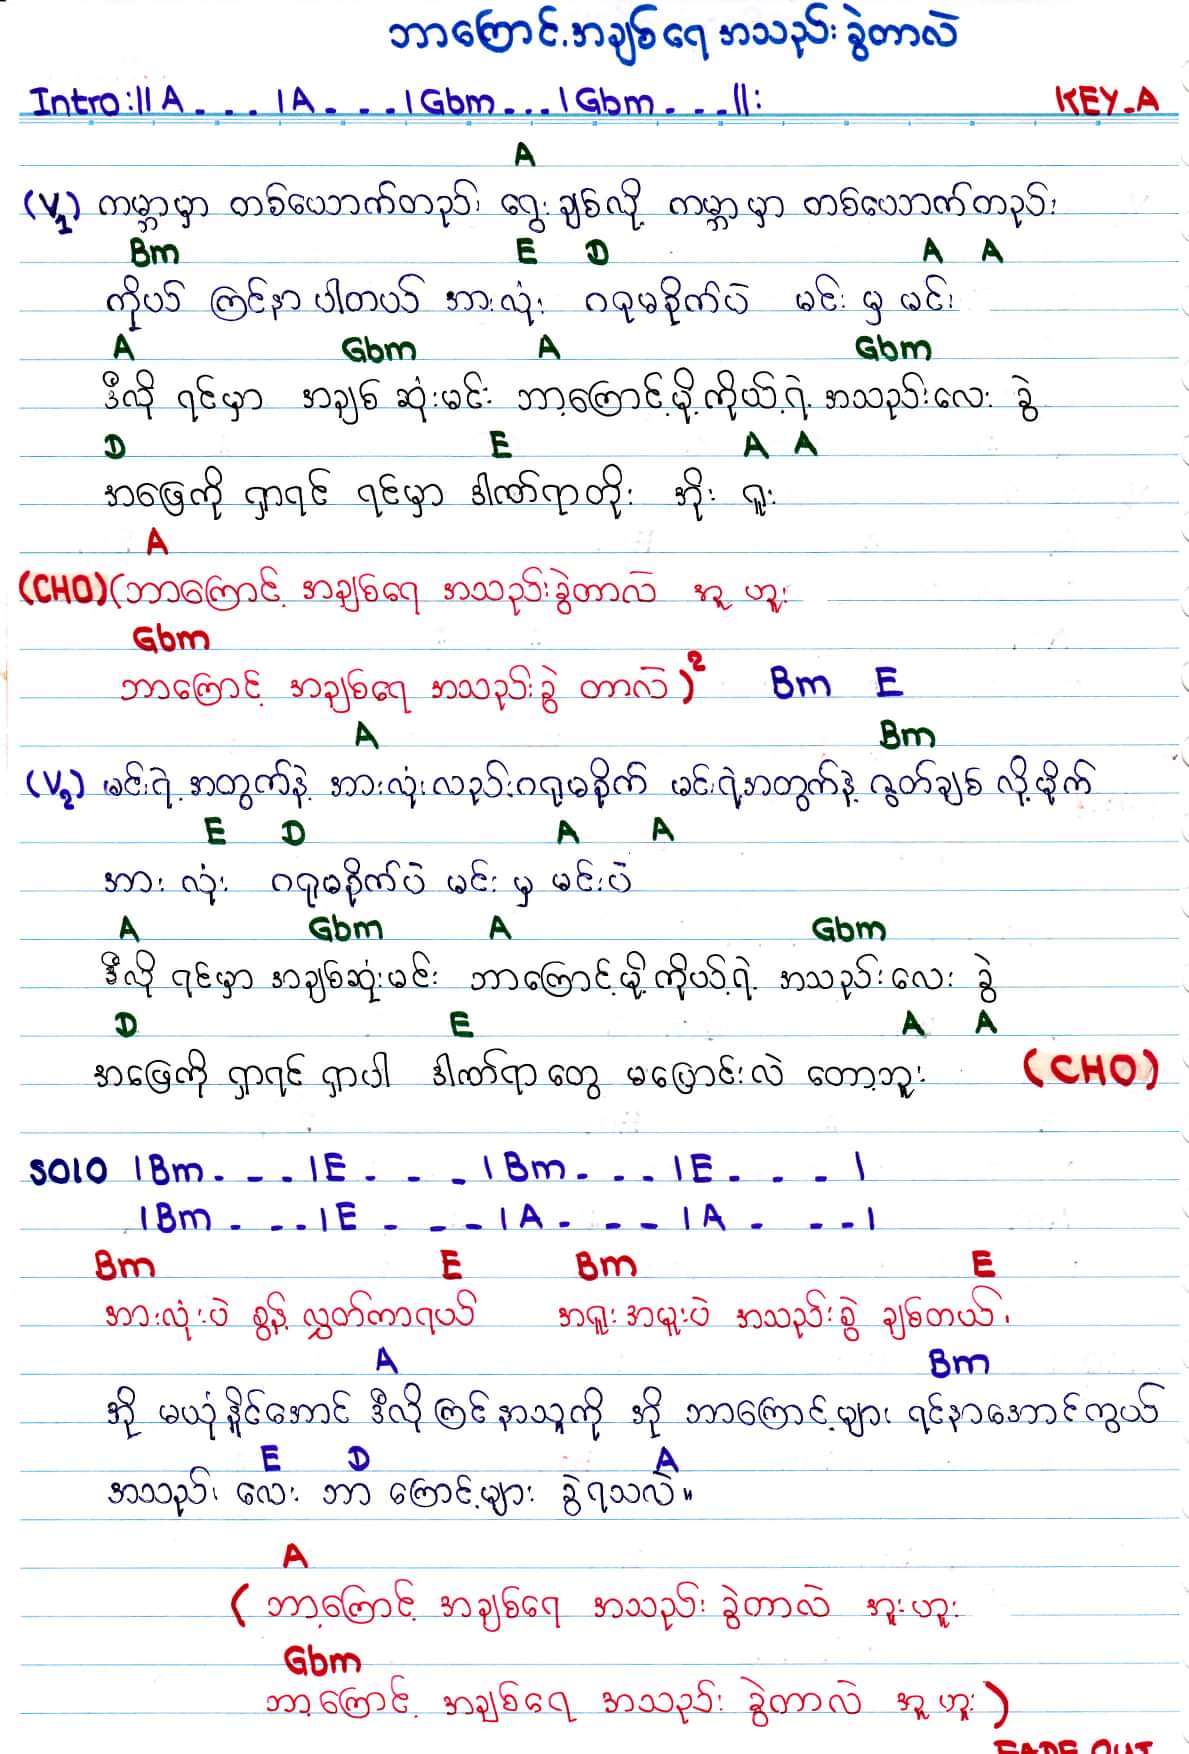 ဘာကြောင့် အချစ်ရေ အသည်းခွဲတာလဲ
Intro:|| A - - - | A - - - | Gbm - - - | Gbm - - - ||:
KEY-A
A
(V1) ကမ္ဘာမှာ တစ်ယောက်တည်း ရွေးချစ်လို့ ကမ္ဘာမှာ တစ်ယောက်တည်း
Bm E D A A
ကိုယ် ကြင်နာပါတယ် အားလုံး ဂရုမစိုက်ပဲ မင်းမှ မင်း
A Gbm A Gbm
ဒီလို ရင်မှာ အချစ်ဆုံးမင်း ဘာ့ကြောင့်မို့ ကိုယ့်ရဲ့ အသည်းလေး ခွဲ
D E A A
အဖြေကို ရှာရင် ရင်မှာ ဒါဏ်ရာတိုး အိုး ရူး
A
(CHO) (ဘာကြောင့် အချစ်ရေ အသည်းခွဲတာလဲ အူ ဟူး
Gbm
ဘာကြောင့် အချစ်ရေ အသည်းခွဲ တာလဲ)2 Bm E
A Bm
(V2) မင်းရဲ့ အတွက်နဲ့ အားလုံးလည်းဂရုမစိုက် မင်းရဲ့အတွက်နဲ့ ဇွတ်ချစ် လို့မိုက်
E D A A
အား လုံး ဂရုမစိုက်ပဲ မင်း မှ မင်းပဲ
A Gbm A Gbm
ဒီလို ရင်မှာ အချစ်ဆုံးမင်း ဘာကြောင့်မို့ ကိုယ့်ရဲ့ အသည်းလေး ခွဲ
D E A A
အဖြေကို ရှာရင် ရှာပါ ဒါဏ်ရာတွေ မပြောင်းလဲ တော့ဘူး (CHO)
SOLO | Bm - - - | E - - - | Bm - - - | E - - - |
| Bm - - - | E - - - | A - - - | A - - - |
Bm E Bm E
အားလုံးပဲ စွန့်လွှတ်ကာရယ် အရူးအမူးပဲ အသည်းစွဲ ချစ်တယ်၊
A Bm
အို မယုံနိုင်အောင် ဒီလိုကြင်နာသူကို အို ဘာကြောင့်များ ရင်နာအောင်ကွယ်
E D A
အသည်း လေး ဘာ ကြောင့်များ ခွဲရသလဲ။
A
( ဘာ့ကြောင့် အချစ်ရေ အသည်း ခွဲတာလဲ အူးဟူး
Gbm
ဘာ့ကြောင့် အချစ်ရေ အသည်း ခွဲတာလဲ အူ ဟူး )
FADE OUT